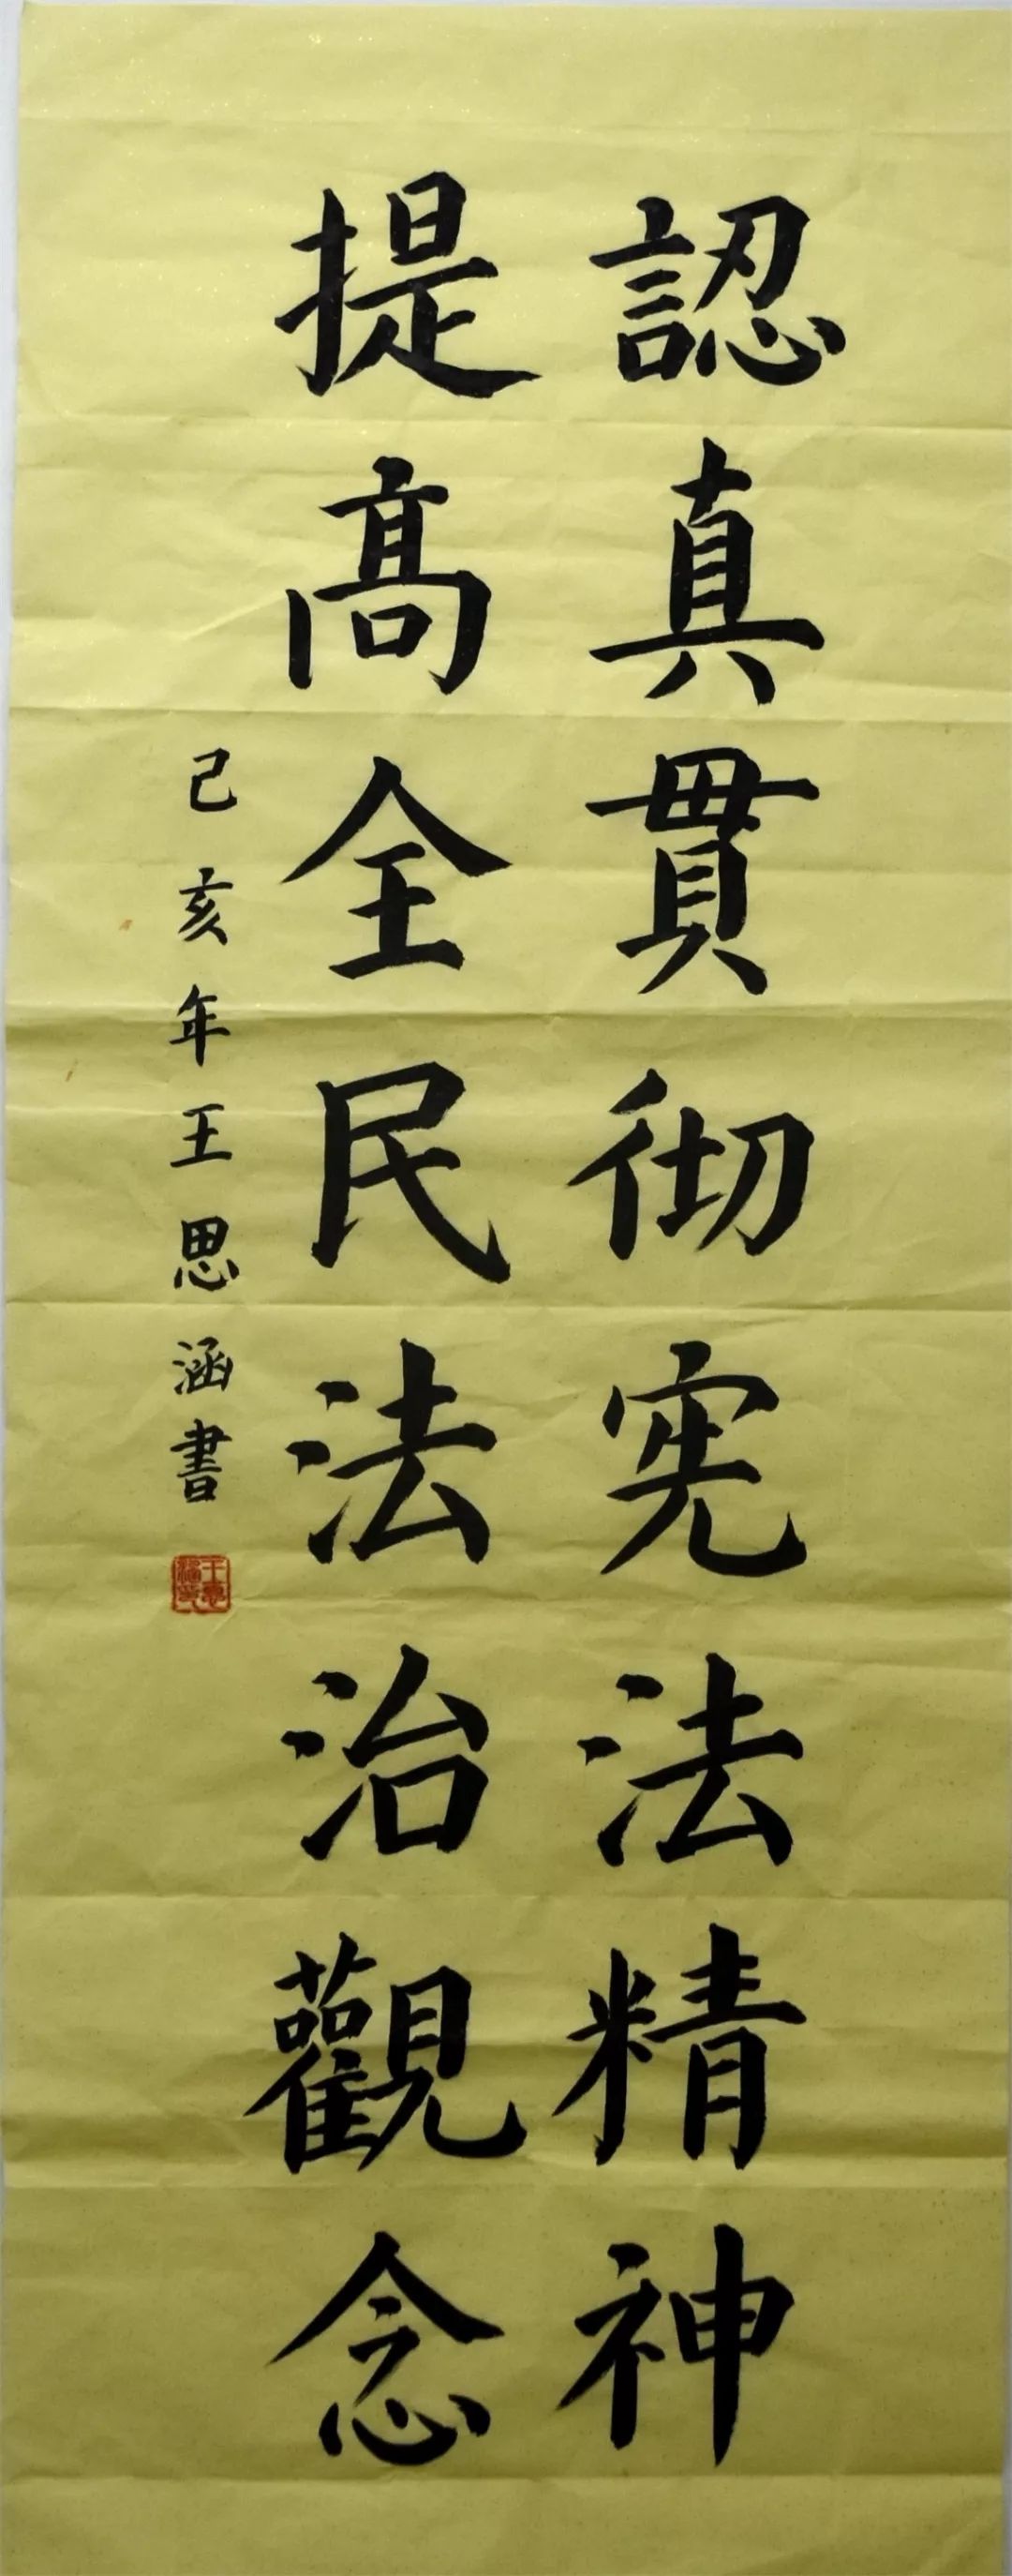 認真貫彻宪法精神
提高全民法治觀念
己亥年王思涵書